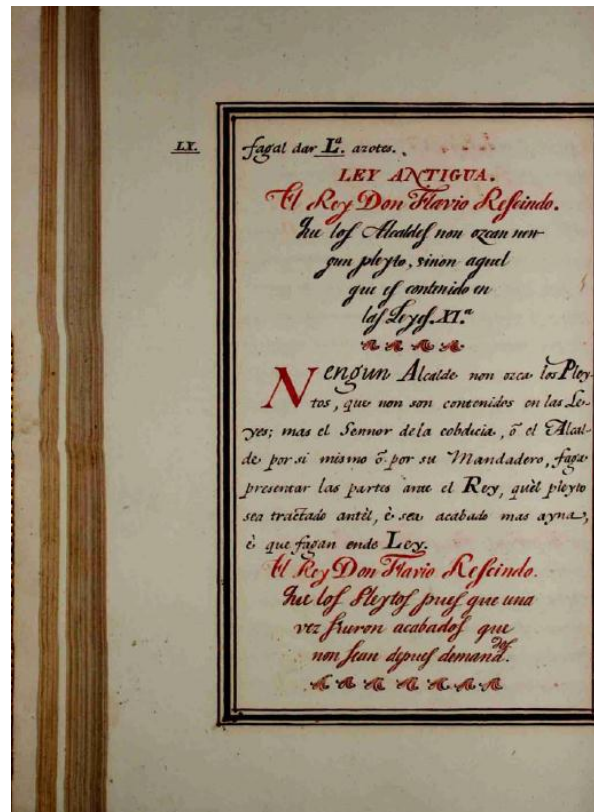 LX.
fagal dar L.ª azotes.
LEY ANTIGUA.
El Rey Don Flavio Rescindo.
Que los Alcaldes non ozcan nen-
gun pleyto, sinon aquel
que es contenido en
las Leyes. XI.ª
Nengun Alcalde non ozca los Pley-
tos, que non son contenidos en las Le-
yes; mas el Sennor dela cobdicia, ô el Alcal-
de por si mismo ô por su Mandadero, faga
presentar las partes ante el Rey, quèl pleyto
sea tractado antèl, è sea acabado mas ayna,
è que fagan ende Ley.
El Rey Don Flavio Rescindo.
Que los Pleytos pues que una
vez fueron acabados que
non sean depues demandados.